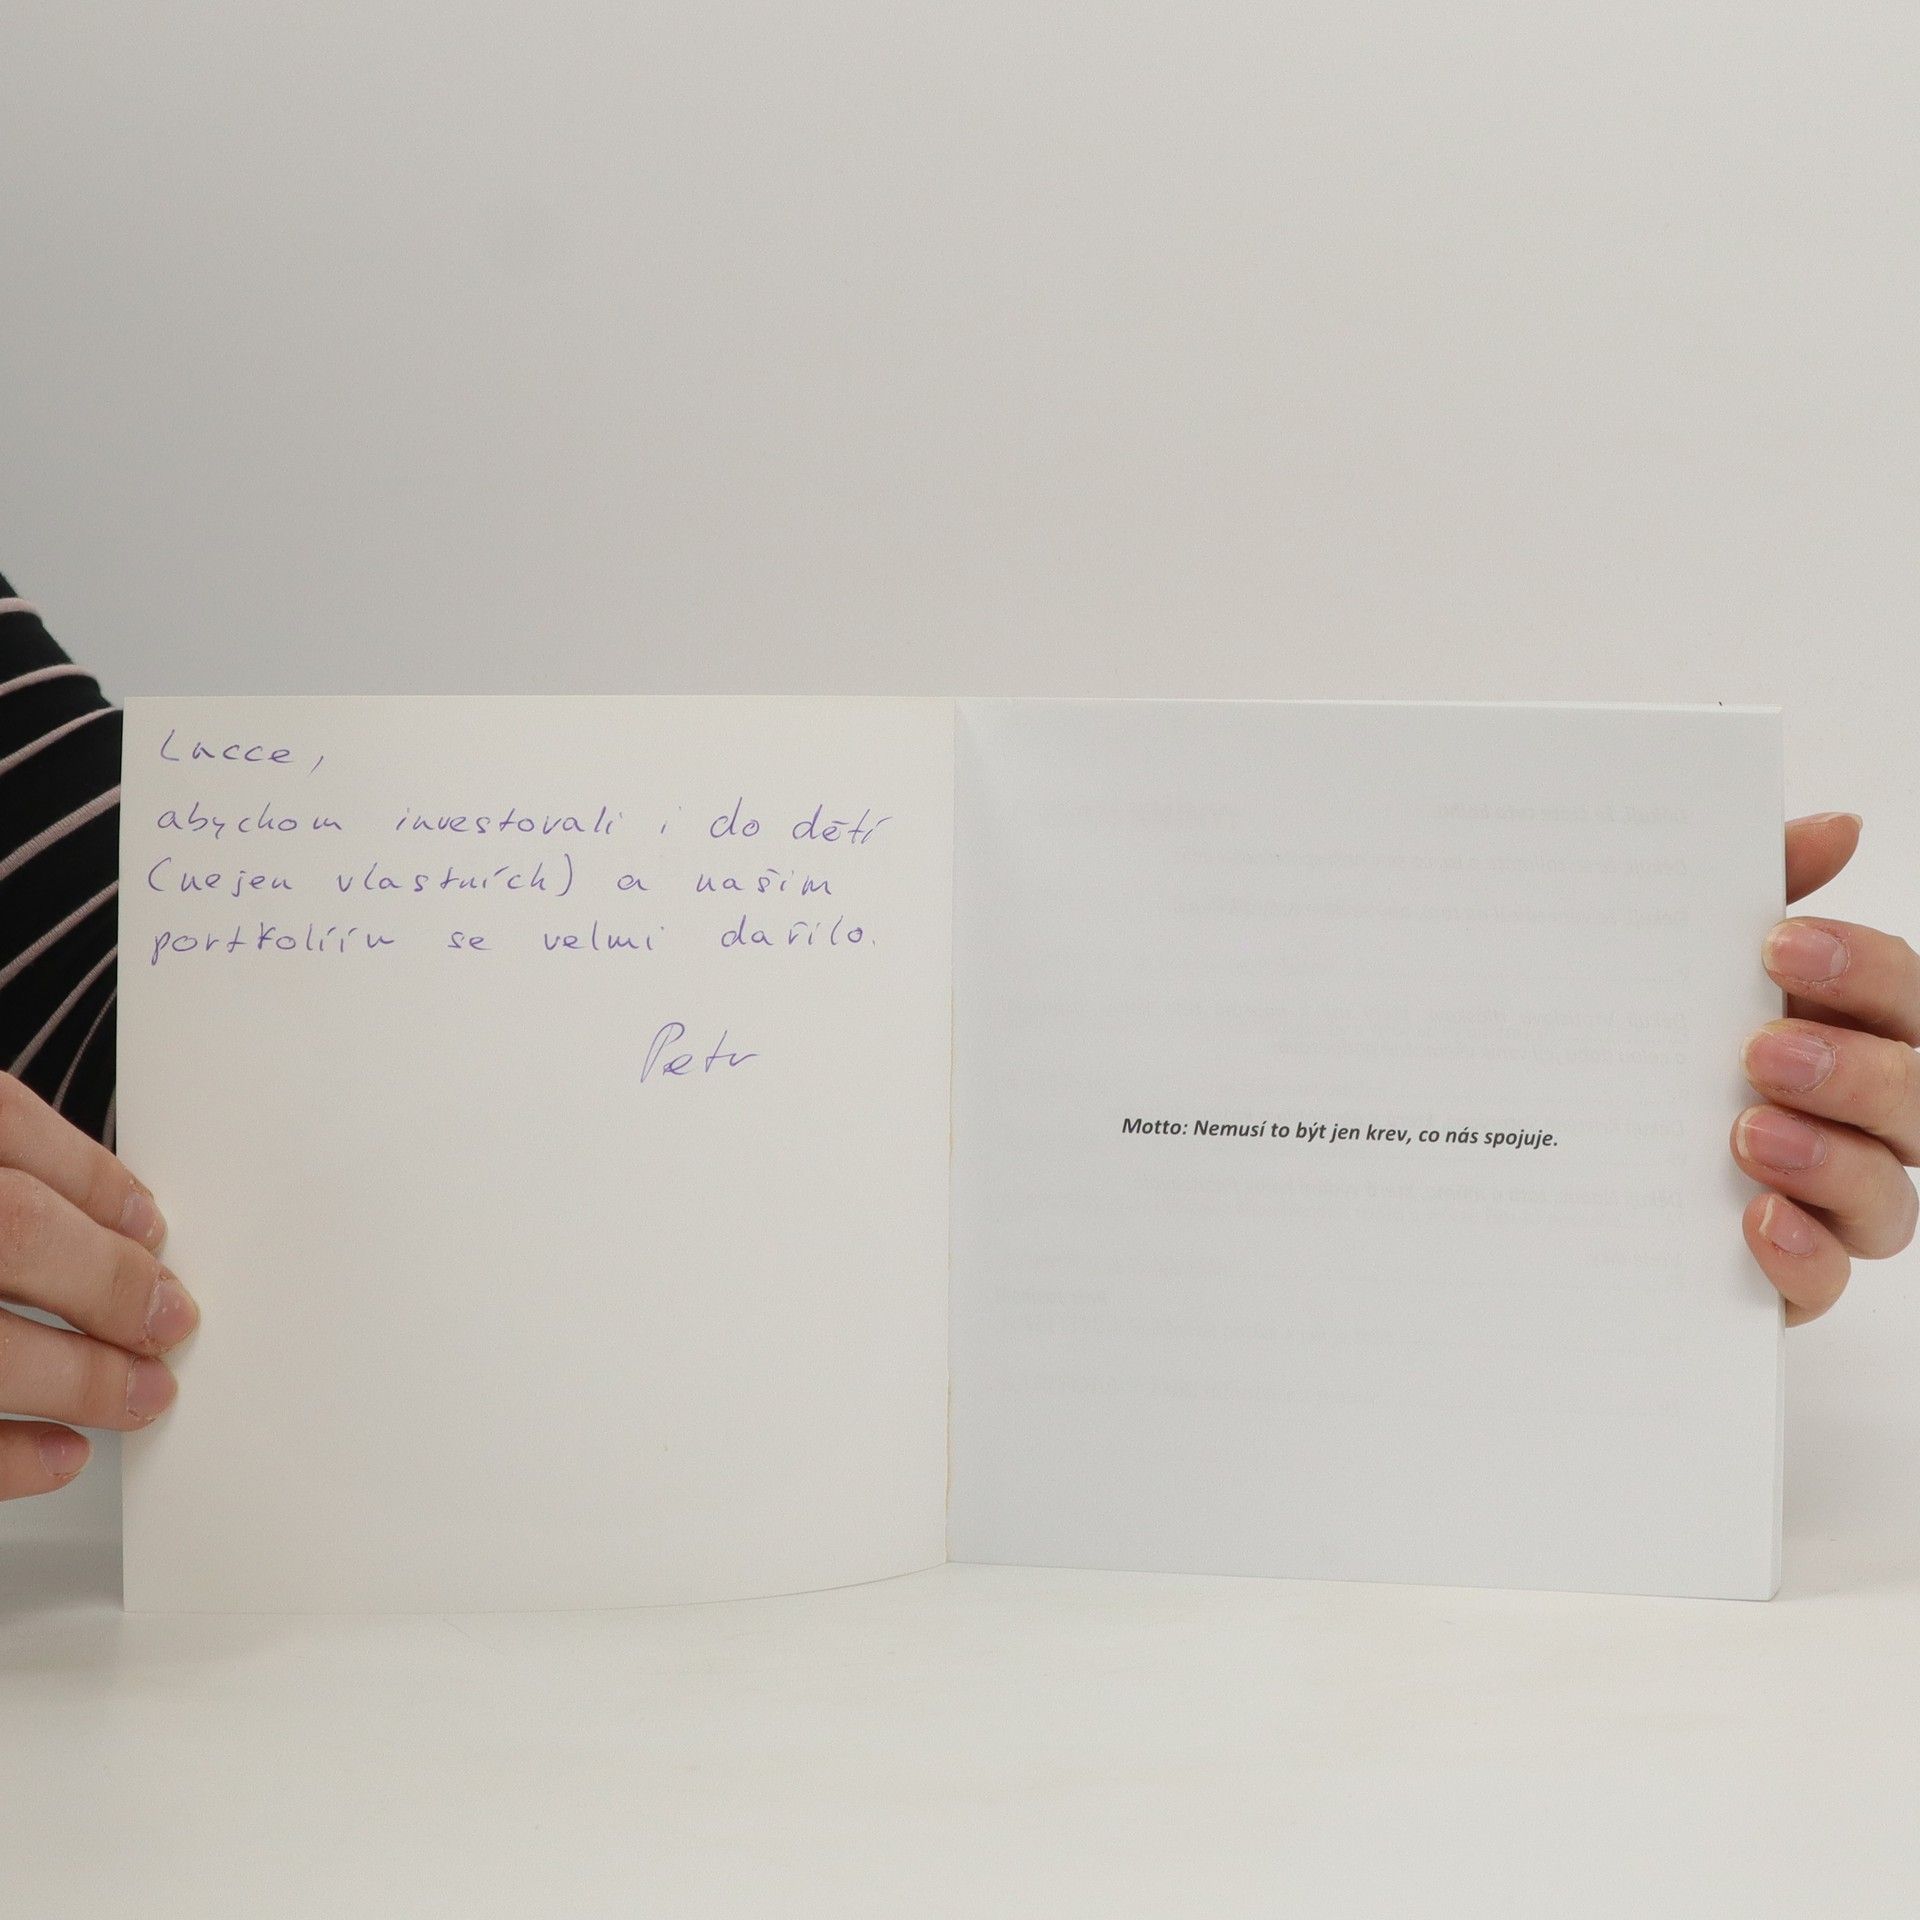 Lucce,
abychom investovali i do dětí
(nejen vlastních) a našim
portfoliím se velmi dařilo.
Petr
Motto: Nemusí to být jen krev, co nás spojuje.